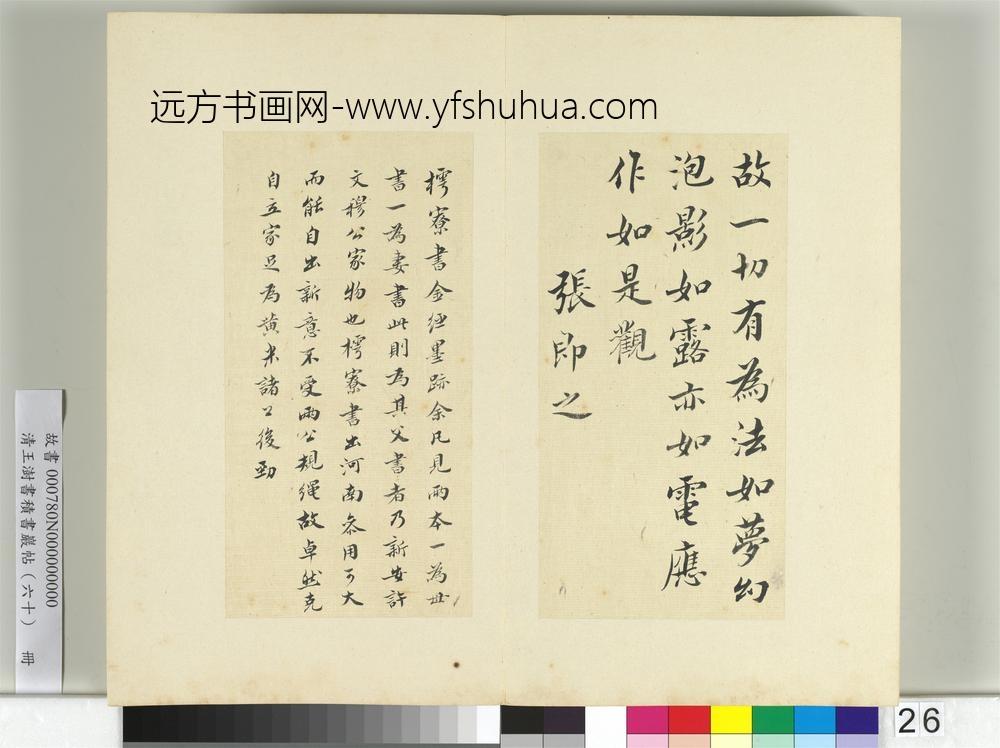 远方书画网-www.yfshuhua.com
故一切有為法如夢幻
泡影如露亦如電應
作如是觀
張即之
樗寮書金經墨跡余凡見兩本一為世
書一為妻書此則為其父書者乃新安許
文穆公家物也樗寮書出河南叅用可大
而能自出新意不受兩公規繩故卓然克
自立家足為黃米諸公後勁
故書 000780N000000000
清王澍書積書巖帖(六十) 冊
26